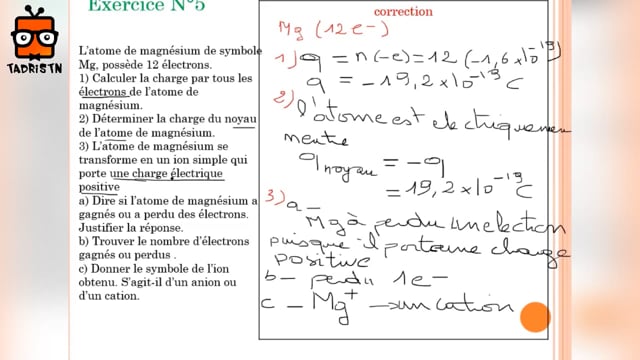 Exercice N°5
L'atome de magnésium de symbole
Mg, possède 12 électrons.
1) Calculer la charge par tous les
électrons de l'atome de
magnésium.
2) Déterminer la charge du noyau
de l'atome de magnésium.
3) L'atome de magnésium se
transforme en un ion simple qui
porte une charge électrique
positive
a) Dire si l'atome de magnésium a
gagnés ou a perdu des électrons.
Justifier la réponse.
b) Trouver le nombre d'électrons
gagnés ou perdus .
c) Donner le symbole de l'ion
obtenu. S'agit-il d'un anion ou
d'un cation.
correction
Mg (12e-)
1) q = n(-e) = 12 (-1,6 x10^-19)
q = -19,2 x10^-19 C
2) l'atome est electriquemen
neutre
q noyau = -q
= 19,2 x10^-19 C
3) a -
Mg à perdu un election
puisque il porte une charge
positive
b- perdu 1e-
c - Mg+ → un cation
TADRISTN